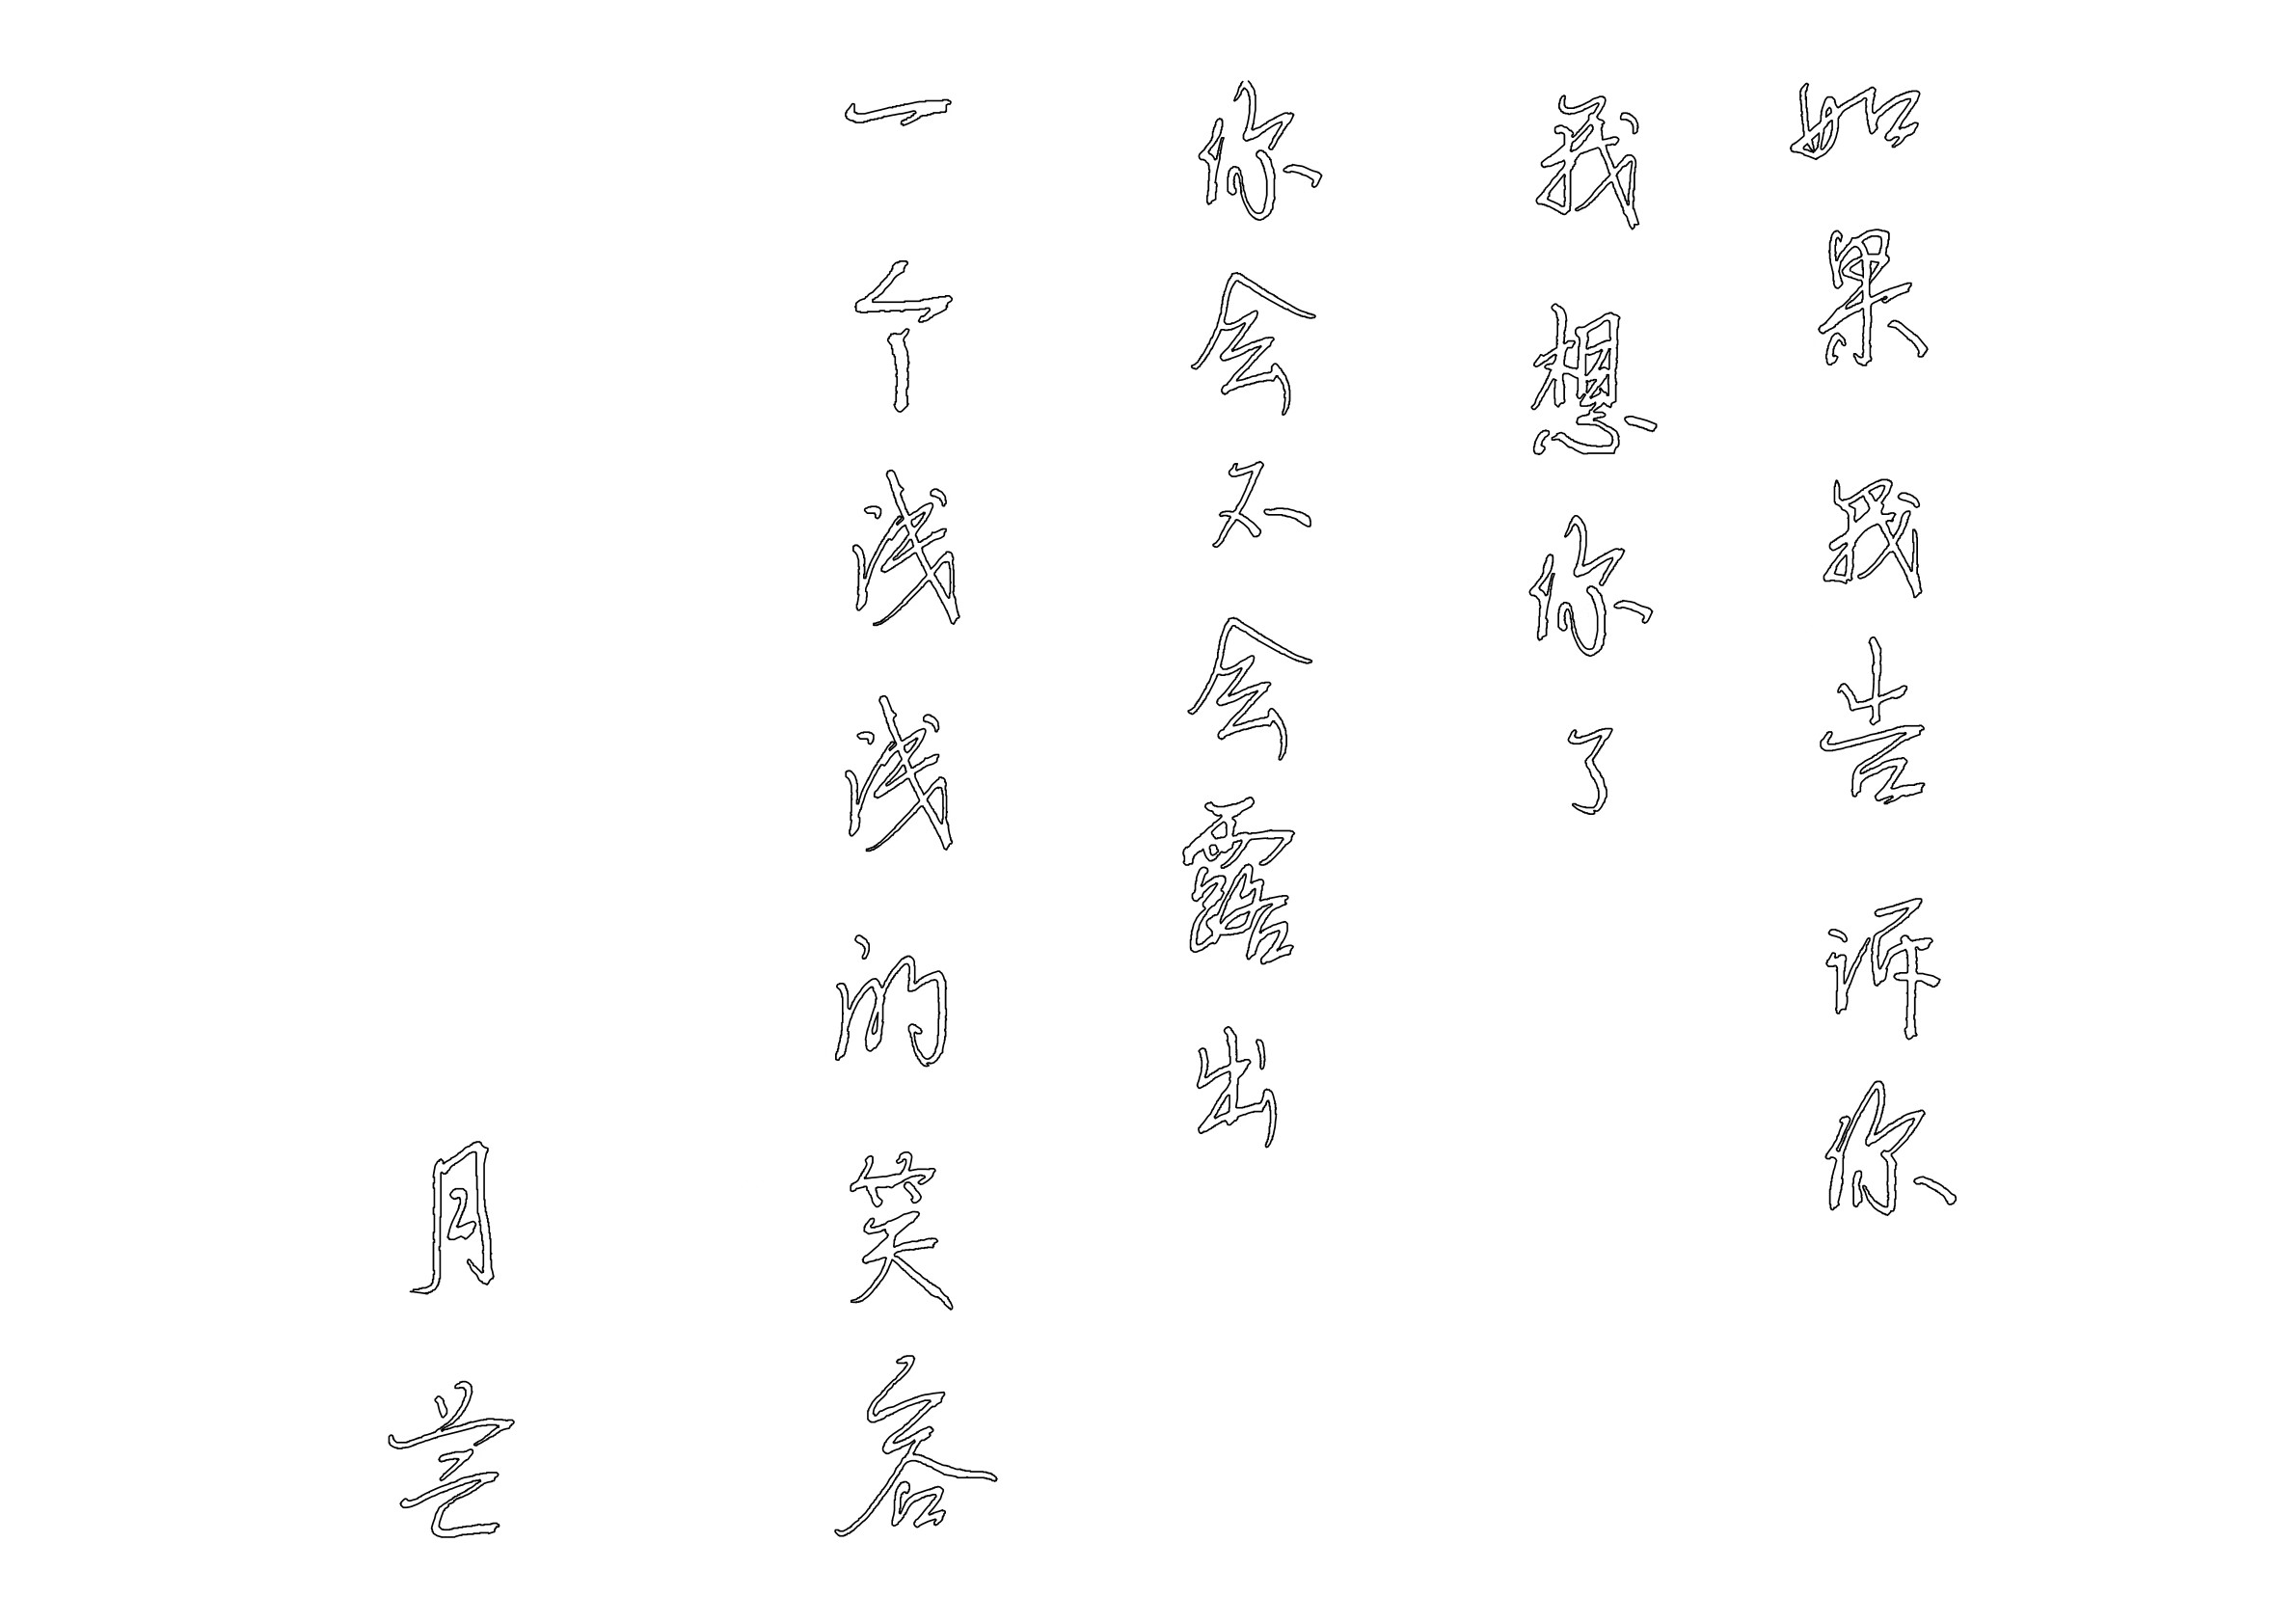 如果我告诉你
我想你了
你会不会露出
一个浅浅的笑容
月